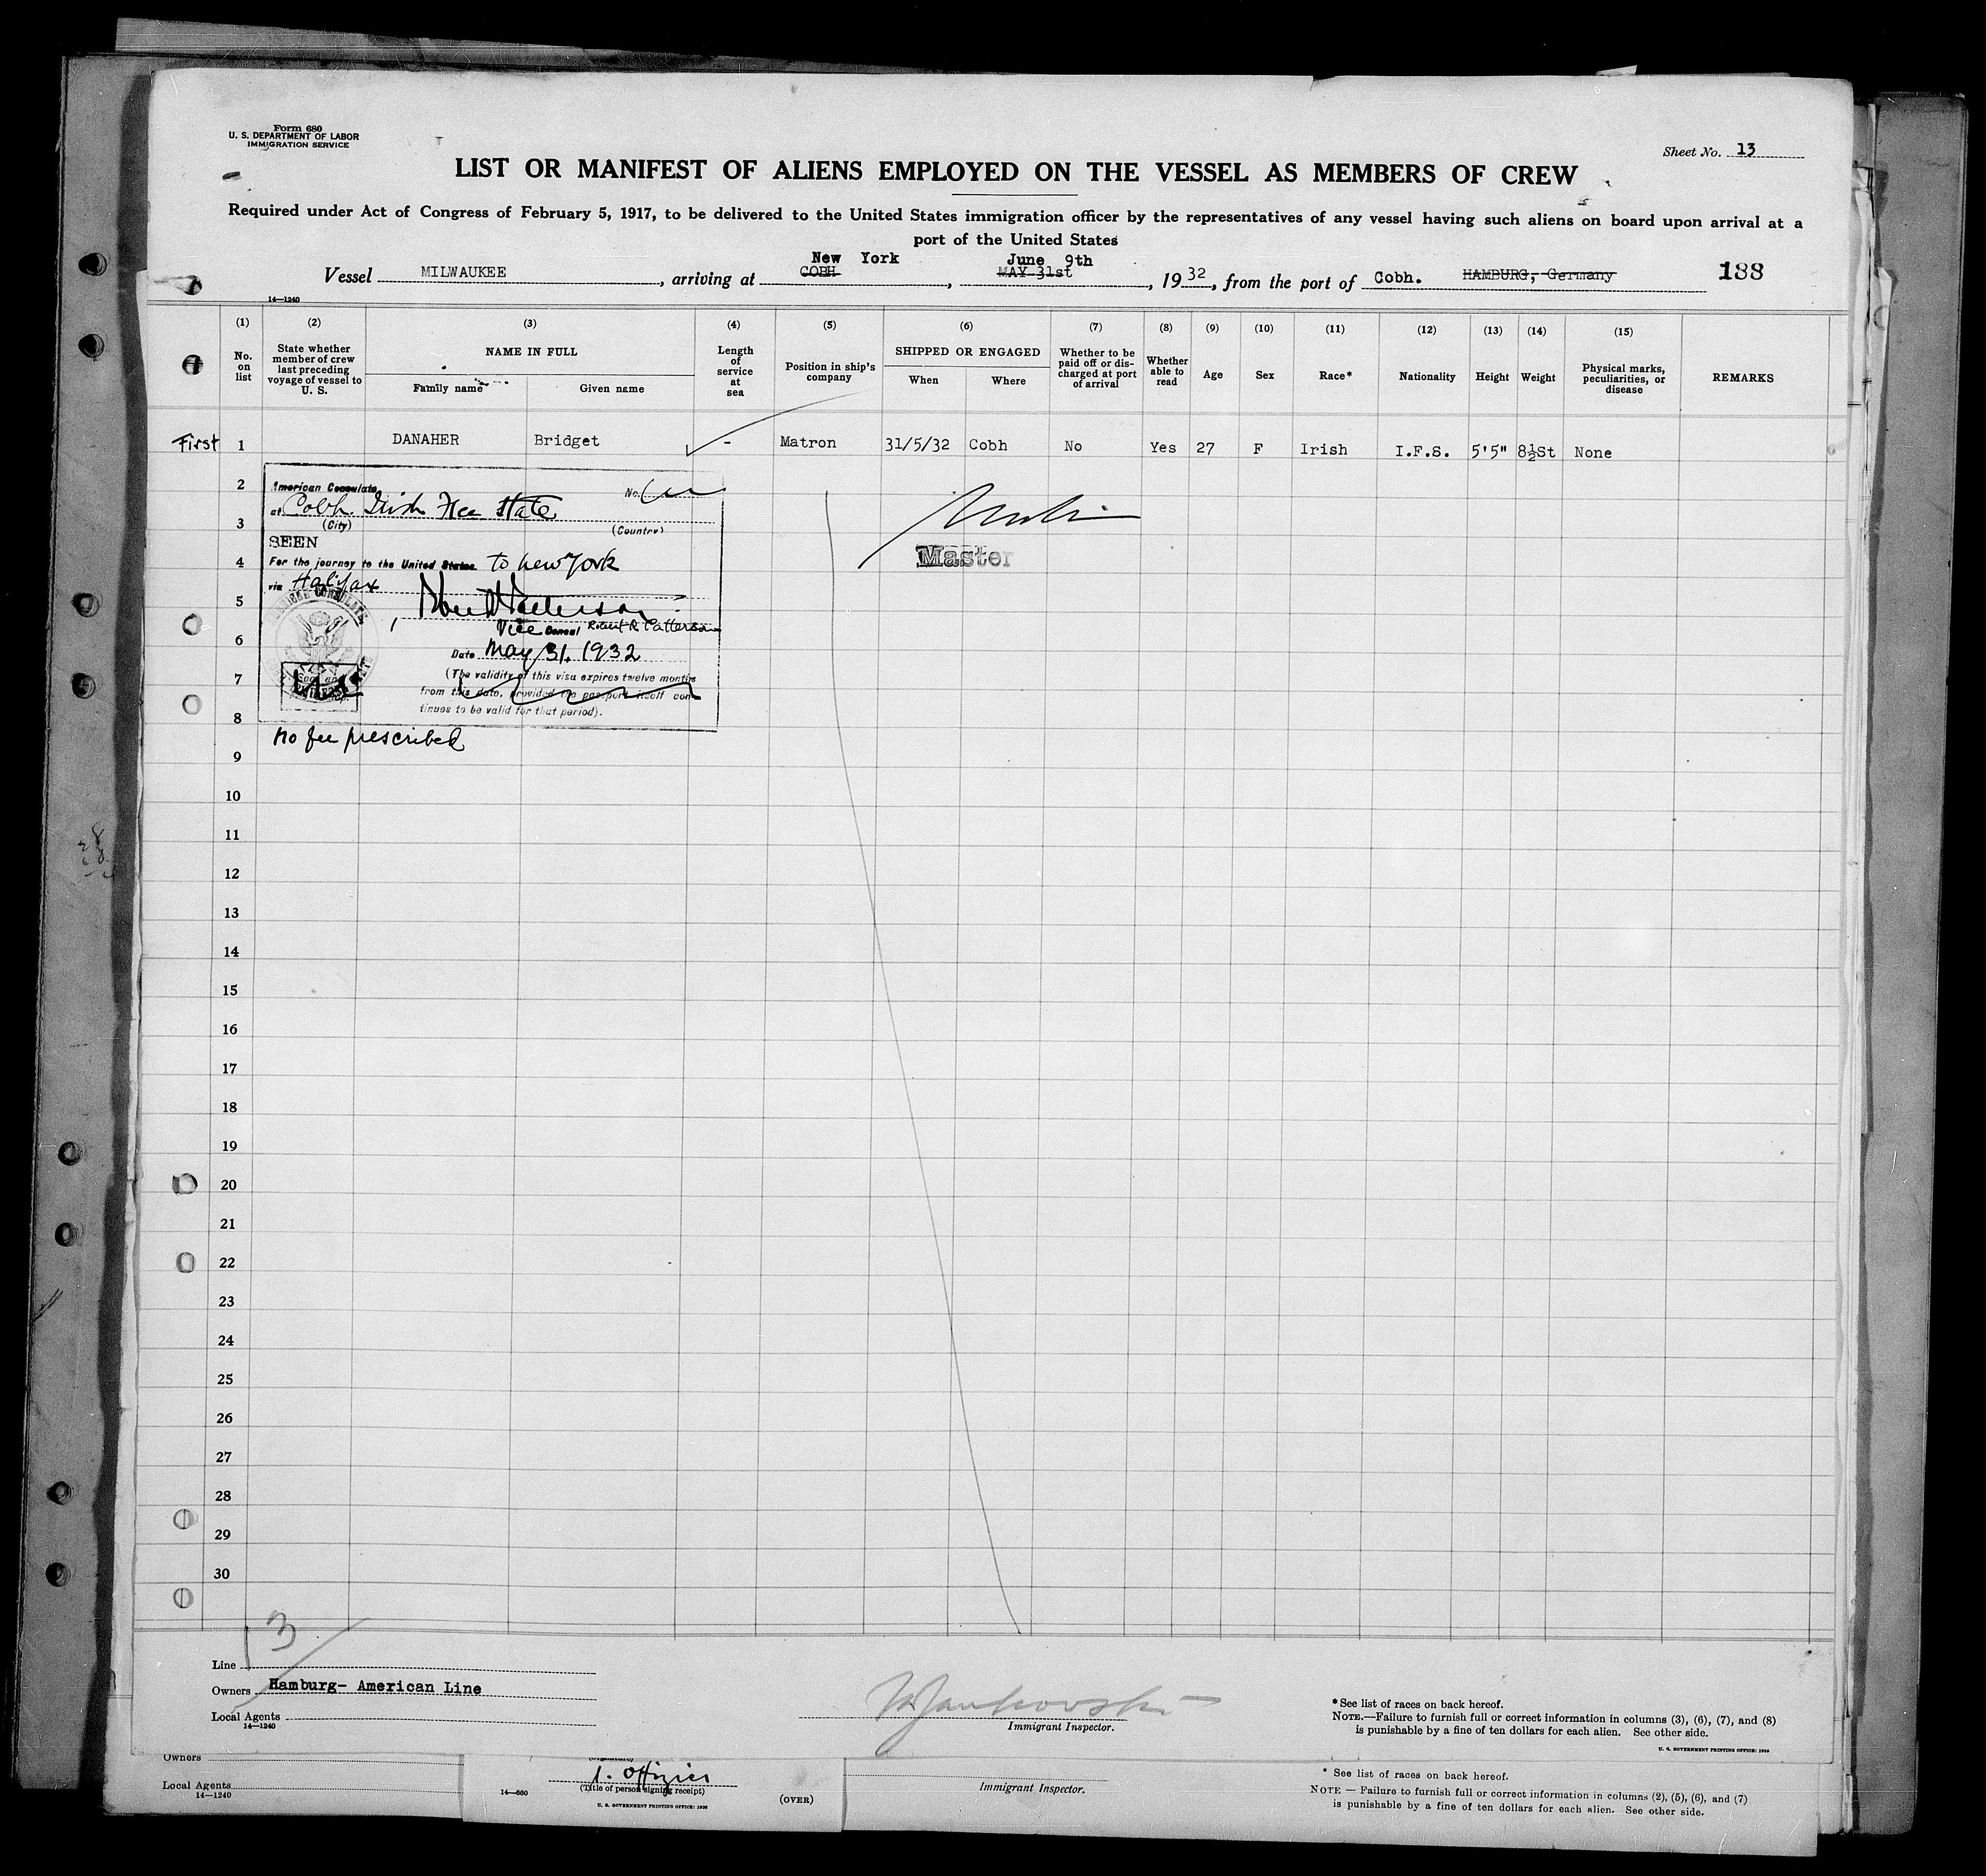 Form 680
U. S. DEPARTMENT OF LABOR
IMMIGRATION SERVICE
Sheet No. 13
LIST OR MANIFEST OF ALIENS EMPLOYED ON THE VESSEL AS MEMBERS OF CREW
Required under Act of Congress of February 5, 1917, to be delivered to the United States immigration officer by the representatives of any vessel having such aliens on board upon arrival at a
port of the United States
New York June 9th
Vessel MILWAUKEE, arriving at COBH, MAY 31st, 1932, from the port of Cobh. HAMBURG, Germany 188
14—1240
(1) (2) (3) (4) (5) (6) (7) (8) (9) (10) (11) (12) (13) (14) (15)
No. on list
State whether member of crew last preceding voyage of vessel to U. S.
NAME IN FULL
Family name Given name
Length of service at sea
Position in ship's company
SHIPPED OR ENGAGED
When Where
Whether to be paid off or discharged at port of arrival
Whether able to read
Age
Sex
Race*
Nationality
Height
Weight
Physical marks, peculiarities, or disease
REMARKS
First 1 DANAHER Bridget - Matron 31/5/32 Cobh No Yes 27 F Irish I.F.S. 5'5" 8½St None
2
3
4
5
6
7
8
9
10
11
12
13
14
15
16
17
18
19
20
21
22
23
24
25
26
27
28
29
30
American Consulate, No.
at Cobh. Irish Free State
(City) (Country)
SEEN
For the journey to the United States to New York
via Halifax
AMERICAN CONSULATE
Vice Consul Robert R. Patterson
Date May 31, 1932
(The validity of this visa expires twelve months
from this date, provided the passport itself con
tinues to be valid for that period).
no fee prescribed
Master
3
Line
Owners Hamburg- American Line
Local Agents
14—1240
Immigrant Inspector.
*See list of races on back hereof.
NOTE.—Failure to furnish full or correct information in columns (3), (6), (7), and (8)
is punishable by a fine of ten dollars for each alien. See other side.
U. S. GOVERNMENT PRINTING OFFICE: 1930
Owners
Local Agents
14—1240
14—660
1. Offizier
(Title of person signing receipt)
U. S. GOVERNMENT PRINTING OFFICE: 1930
(OVER)
Immigrant Inspector.
* See list of races on back hereof.
NOTE — Failure to furnish full or correct information in columns (2), (5), (6), and (7)
is punishable by a fine of ten dollars for each alien. See other side.